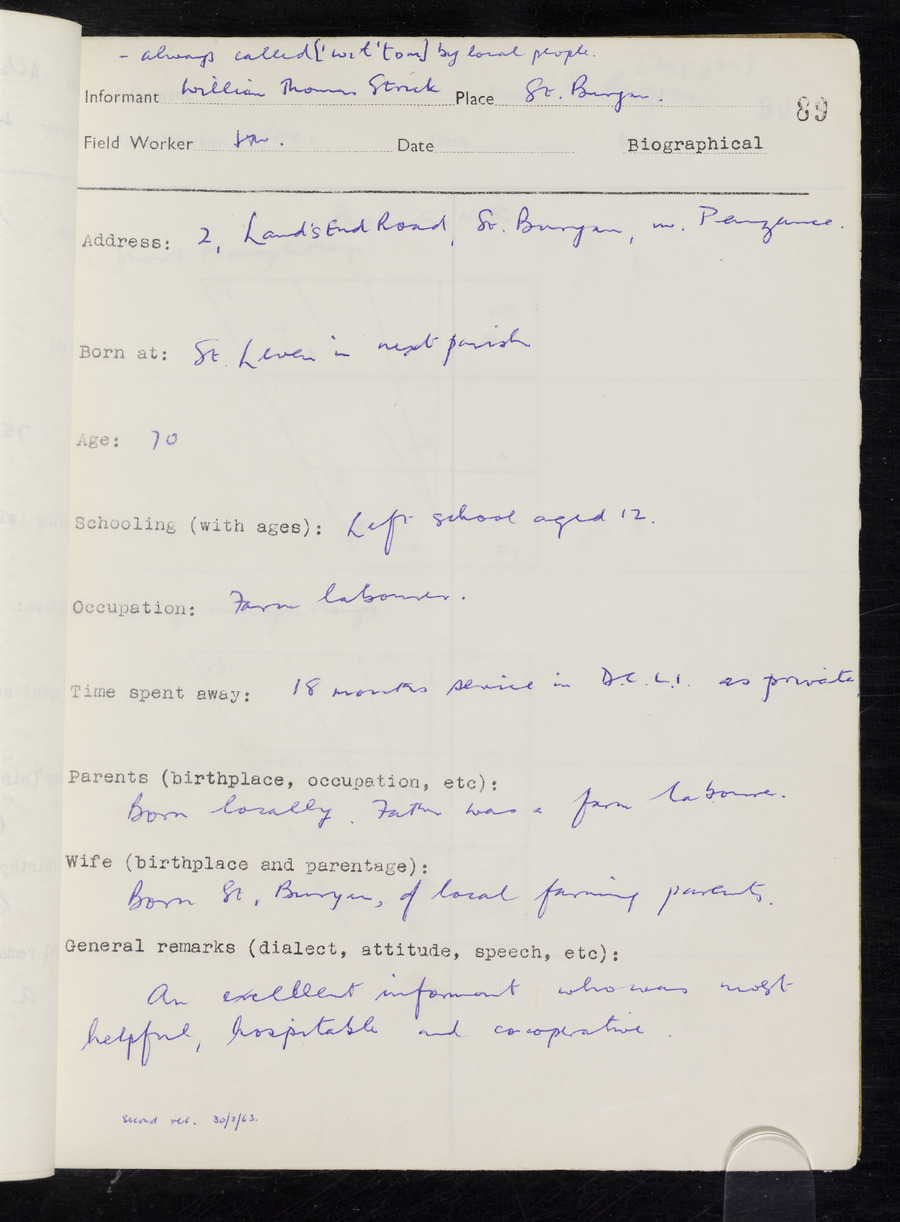 - always called ['wɪl'tɒm] by local people.
Informant William Thomas Strick Place St. Buryan.
89
Field Worker Date Biographical
Address: 2, Land's End Road, St. Buryan, nr. Penzance.
Born at: St. Leven in next parish
Age: 70
Schooling (with ages): Left school aged 12.
Occupation: Farm labourer.
Time spent away: 18 months service in D.C.L.I. as private
Parents (birthplace, occupation, etc):
Born locally. Father was a farm labourer.
Wife (birthplace and parentage):
Born St. Buryan, of local farming parents.
General remarks (dialect, attitude, speech, etc):
An excellent informant who was most
helpful, hospitable and cocoperative.
Second rec. 30/3/63.